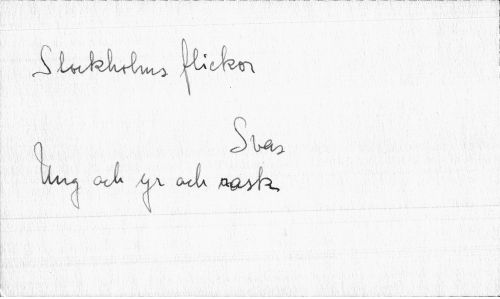 Stockholms flickor
Svas
Ung och yr och rask